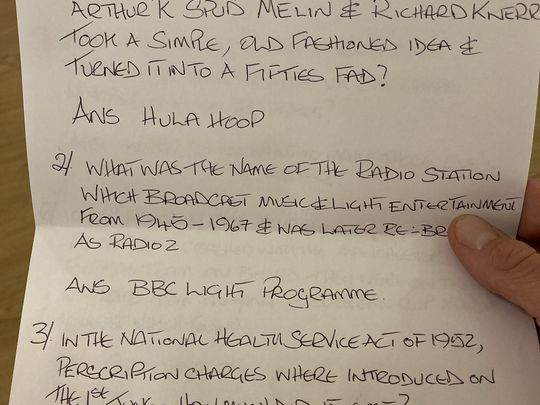 ARTHUR K SPUD MELIN & RICHARD KNERR
TOOK A SIMPLE, OLD FASHIONED IDEA &
TURNED IT INTO A FIFTIES FAD?
ANS HULA HOOP
2/ WHAT WAS THE NAME OF THE RADIO STATION
WHICH BROADCAST MUSIC & LIGHT ENTERTAINMENT
FROM 1945-1967 & WAS LATER RE-BR
AS RADIO 2
ANS BBC LIGHT PROGRAMME.
3/ IN THE NATIONAL HEALTH SERVICE ACT OF 1952,
PERSCRIPTION CHARGES WHERE INTRODUCED ON
THE 1ST